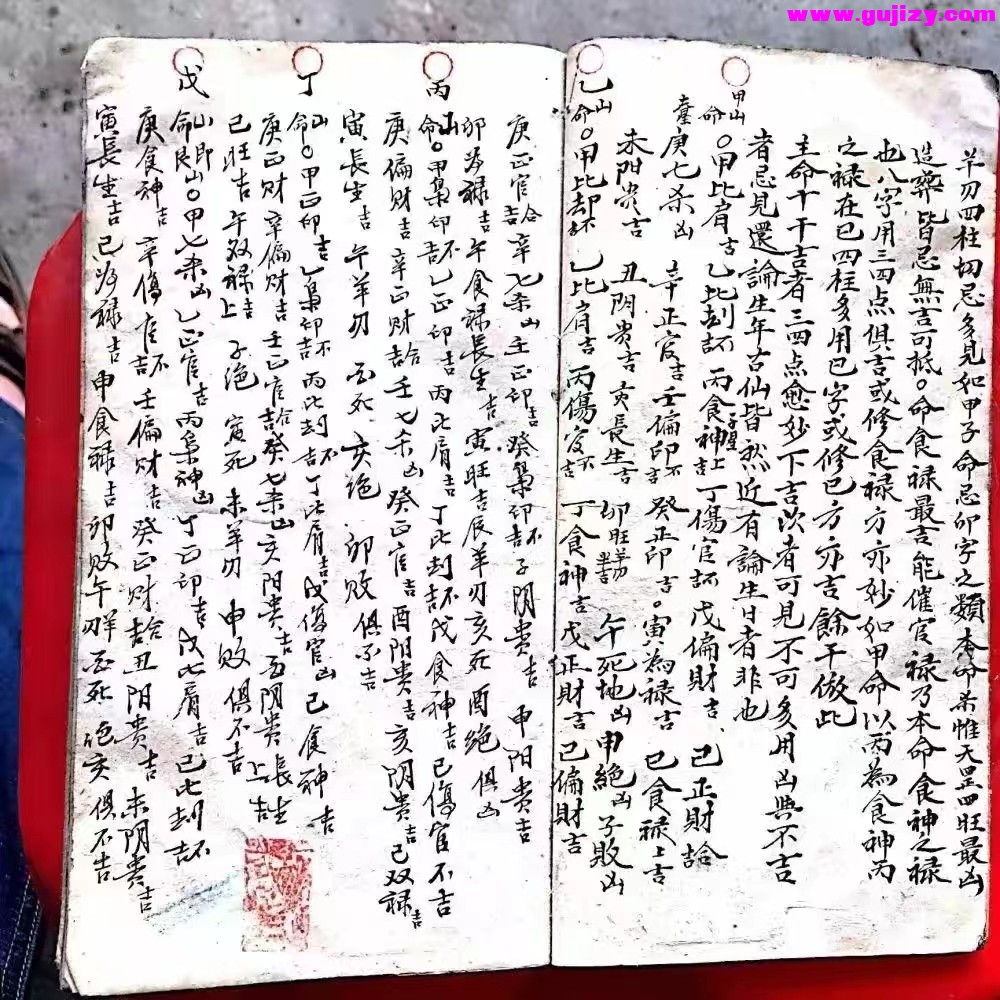 www.gujizy.com
羊刃四柱切忌多見如甲子命忌卯字之類本命杀惟天罡四旺最凶
造葬皆忌無吉可抵○命食禄最吉能催官禄乃本命食神之禄
也八字用三四点俱吉或修食禄方亦妙如甲命以丙為食神丙
之禄在巳四柱多用巳字或修巳方亦吉餘干倣此
生命十干吉者三四点愈妙下吉次者可見不可多用凶與不吉
者忌見還論生年古仙皆然近有論生日者非也
甲山命○甲比肩吉乙比刦不吉丙食神上吉丁傷官不吉戊偏財吉己正財合吉
庚七杀凶辛正官吉壬偏印不吉癸正印吉○寅為禄吉巳食禄上吉
未陽贵吉丑阴贵吉亥長生吉卯旺羊刃半吉午死地凶申絕凶子敗凶
乙山命○甲比却不吉乙比肩吉丙傷官不吉丁食神吉戊正財吉己偏財吉
庚正官合吉辛七杀凶壬正印吉癸梟印不吉子阴贵吉申阳贵吉
卯为禄吉午食禄長生吉寅旺吉辰羊刃亥死酉絶俱凶
丙山命○甲梟印不吉乙正印吉丙比肩吉丁比刦不吉戊食神吉己傷官不吉
庚偏財吉辛正財合吉壬七杀凶癸正官吉酉阳贵吉亥阴贵吉巳双禄吉
寅長生吉午羊刃酉死亥绝卯敗俱不吉
丁山命○甲正印吉乙梟印不吉丙比刦不吉丁比肩吉戊傷官凶己食神吉
庚正財辛偏财吉壬正官合吉癸七杀凶亥阳贵吉酉阴贵長生上吉
巳旺吉午双禄上吉子绝寅死未羊刃申敗俱不吉
戊山命即艮山○甲七杀凶乙正官吉丙梟神凶丁正印吉戊比肩吉己比刦不吉
庚食神吉辛傷官不吉壬偏財吉癸正財合吉丑阳贵吉未阴贵吉
寅長生吉巳为禄吉申食禄吉卯敗午刃酉死绝亥俱不吉